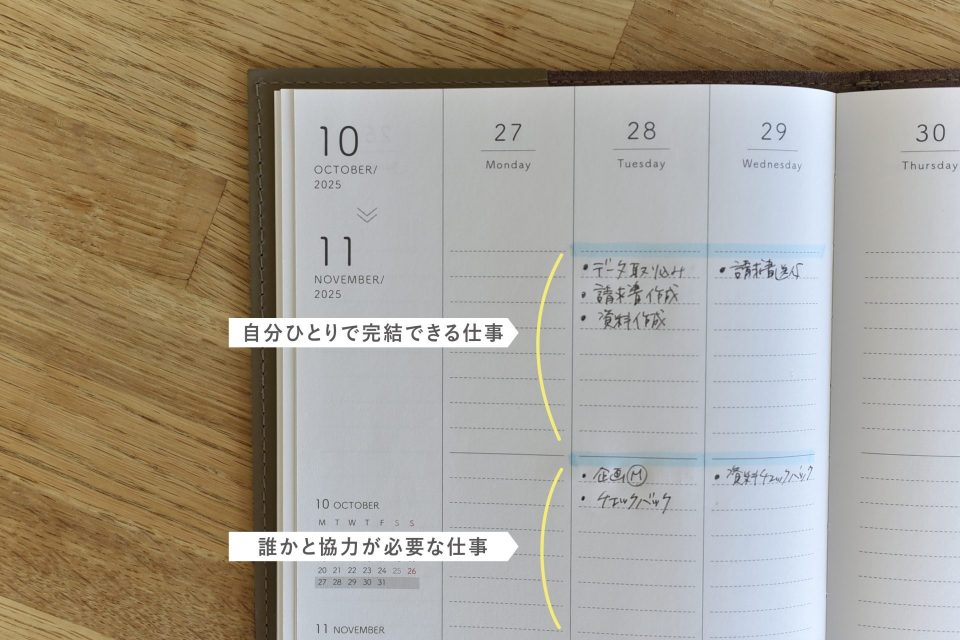 10
OCTOBER/
2025
11
NOVEMBER/
2025
27
Monday
28
Tuesday
29
Wednesday
30
Thursday
・データ取り込み
・請求書作成
・資料作成
・請求書送付
自分ひとりで完結できる仕事
・企画Ⓜ
・チェックバック
・資料チェックバック
誰かと協力が必要な仕事
10 OCTOBER
M T W T F S S
20 21 22 23 24 25 26
27 28 29 30 31
11 NOVEMBER